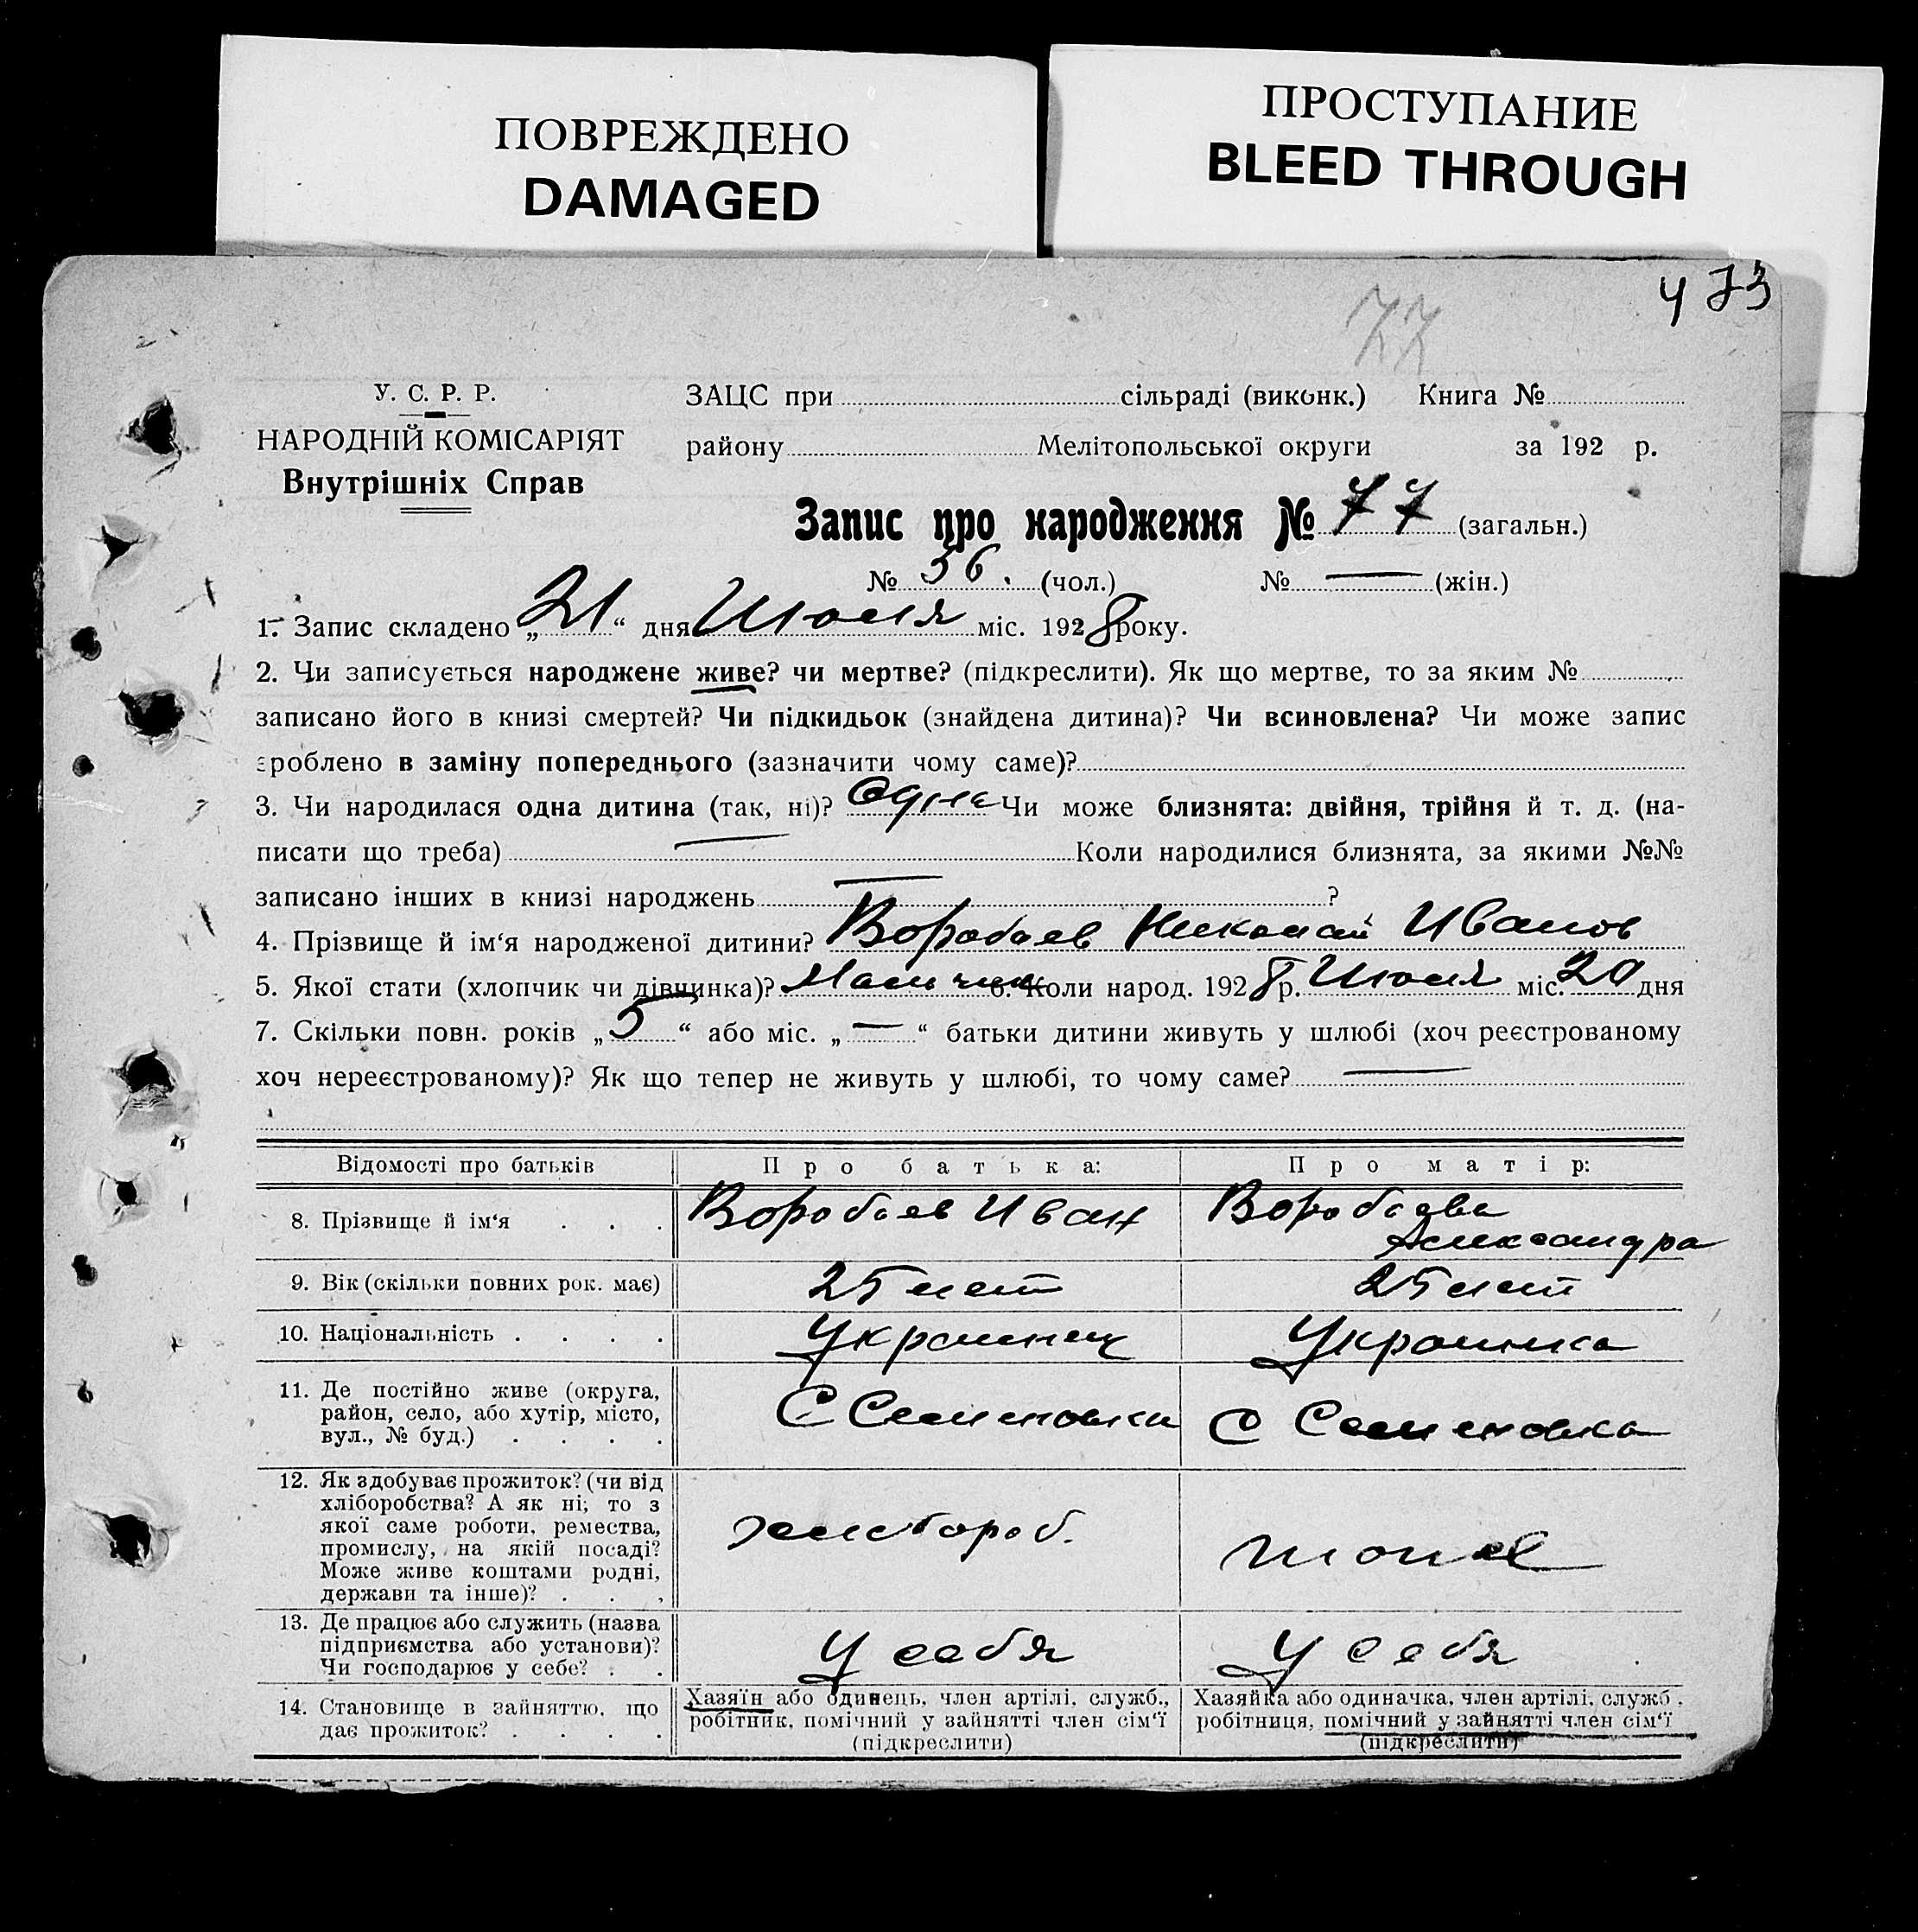 ПОВРЕЖДЕНО
DAMAGED
ПРОСТУПАНИЕ
BLEED THROUGH
473
77
У. С. Р. Р.
НАРОДНІЙ КОМІСАРІЯТ
Внутрішніх Справ
ЗАЦС при сільраді (виконк.) Книга №
району Мелітопольської округи за 192 р.
Запис про народження № 77 (загальн.)
№ 36. (чол.) № — (жін.)
1. Запис складено „21“ дня Июля міс. 1928 року.
2. Чи записується народжене живе? чи мертве? (підкреслити). Як що мертве, то за яким №
записано його в книзі смертей? Чи підкидьок (знайдена дитина)? Чи всиновлена? Чи може запис
зроблено в заміну попереднього (зазначити чому саме)?
3. Чи народилася одна дитина (так, ні)? Одна Чи може близнята: двійня, трійня й т. д. (на-
писати що треба) — Коли народилися близнята, за якими №№
записано інших в книзі народжень — ?
4. Прізвище й ім‘я народженої дитини? Воробьев Николай Иванов
5. Якої стати (хлопчик чи дівчинка)? Мальчик 6. Коли народ. 1928 р. Июля міс. 20 дня
7. Скільки повн. років „5“ або міс. „—“ батьки дитини живуть у шлюбі (хоч реєстрованому
хоч нереєстрованому)? Як що тепер не живуть у шлюбі, то чому саме? —
Відомості про батьків Про батька: Про матір:
8. Прізвище й ім‘я . . . Воробьев Иван Воробьева
Александра
9. Вік (скільки повних рок. має) 25 лет 25 лет
10. Національність . . . . Украинец Украинка
11. Де постійно живе (округа,
район, село, або хутір, місто,
вул., № буд.) . . . .
С Семеновка С Семеновка
12. Як здобуває прожиток? (чи від
хліборобства? А як ні, то з
якої саме роботи, ремества,
промислу, на якій посаді?
Може живе коштами родні,
держави та інше)? . . .
хлебороб.
13. Де працює або служить (назва
підприємства або установи)?
Чи господарює у себе? . .
У себя У себя
14. Становище в зайняттю, що
дає прожиток? . . . .
Хазяїн або одинець, член артілі, служб.,
робітник, помічний у зайнятті член сім‘ї
(підкреслити)
Хазяйка або одиначка, член артілі, служб.,
робітниця, помічний у зайнятті член сім‘ї
(підкреслити)